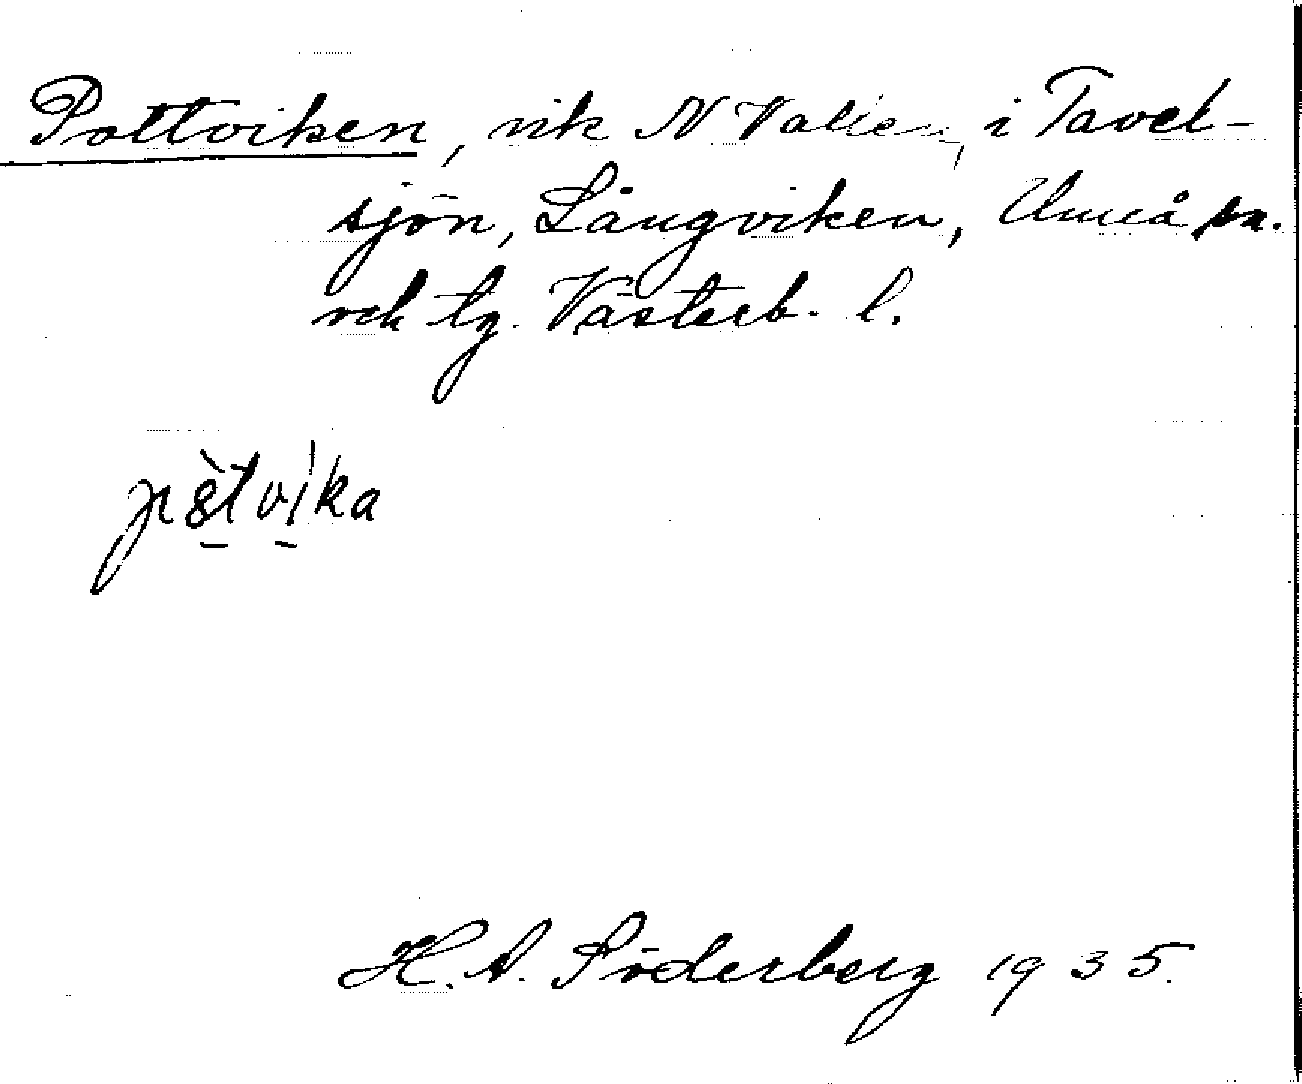 Pottviken, vik N Valien, i Tavel-
sjön, Långviken, Umeå sn.
och tg. Västerb. l.
H. A. Söderberg 1935.